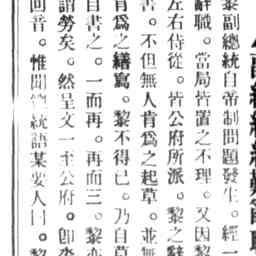 黎副總統自帝制問題發生。經一
辭職。當局皆置之不理。又因黎
左右侍從。皆公府所派。黎之辭
書。不但無人肯爲之起草。並無
肯爲之繕寫。黎不得已。乃自草
自書之。一而再。再而三。黎亦
謂勞矣。然呈文一至公府。卽杳
回音。惟聞總統語某要人曰。黎